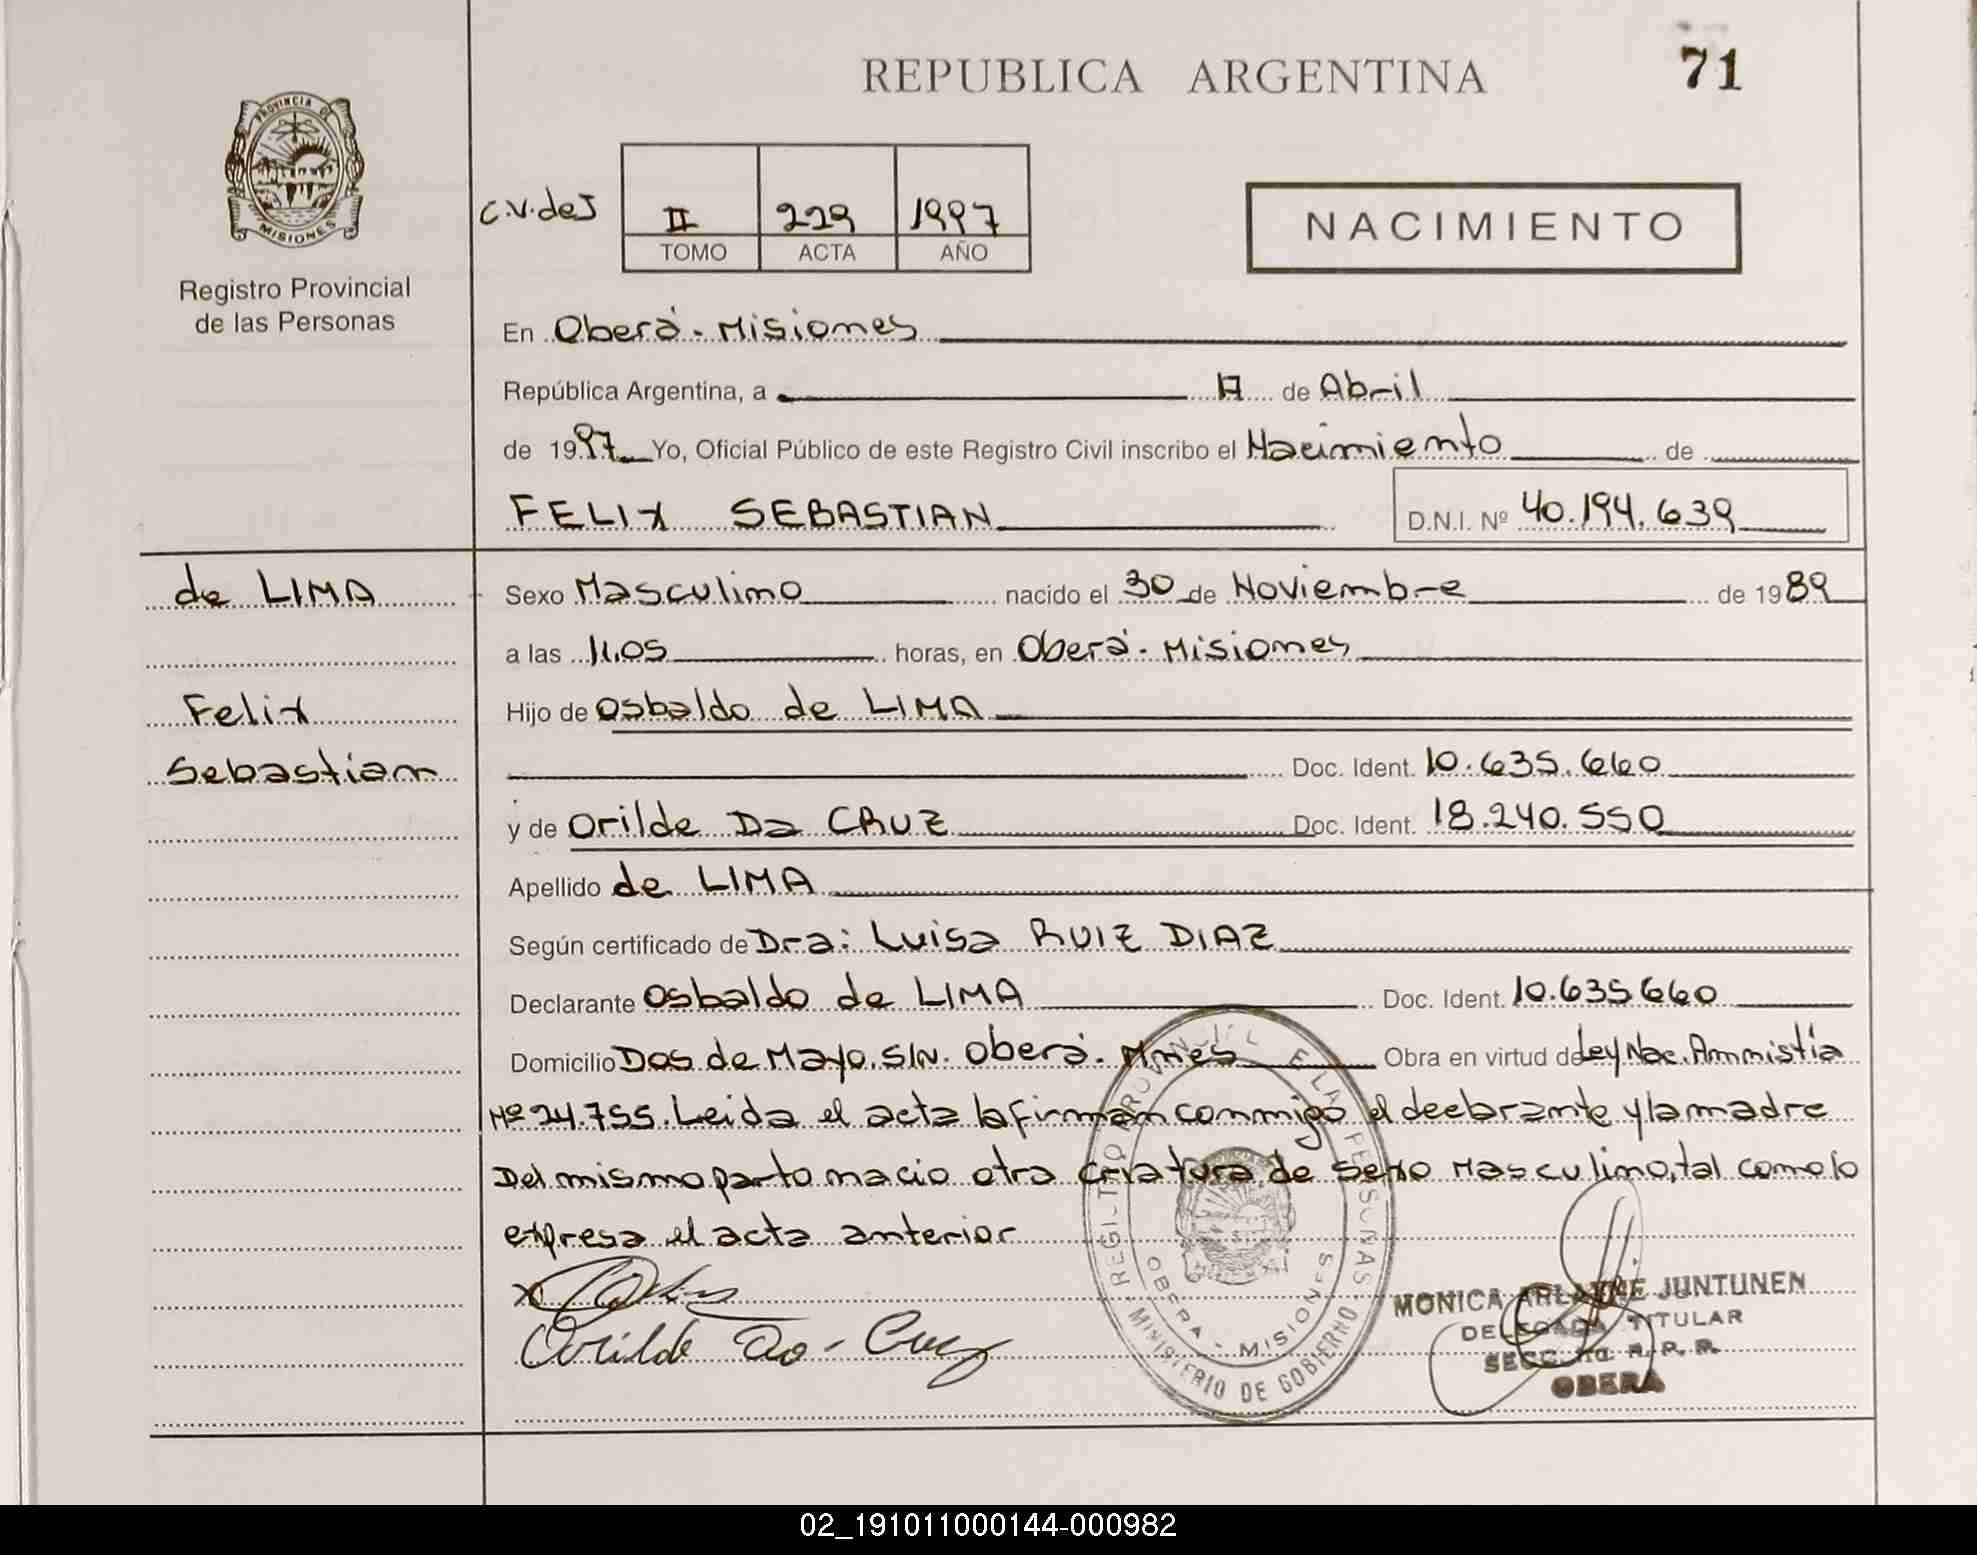 REPUBLICA ARGENTINA
71
PROVINCIA DE
MISIONES
Registro Provincial
de las Personas
C.V.deJ
II 229 1997
TOMO ACTA AÑO
NACIMIENTO
En Oberá - Misiones
República Argentina, a 17 de Abril
de 1997 Yo, Oficial Público de este Registro Civil inscribo el Nacimiento de
FELIX SEBASTIAN D.N.I. Nº 40.194.639
de LIMA
Felix
Sebastian
Sexo Masculino nacido el 30 de Noviembre de 1989
a las 11.05 horas, en Oberá - Misiones
Hijo de Osbaldo de LIMA
Doc. Ident. 10.635.660
y de Orilde Da CRUZ Doc. Ident. 18.240.550
Apellido de LIMA
Según certificado de Dra: Luisa RUIZ DIAZ
Declarante Osbaldo de LIMA Doc. Ident. 10.635660
Domicilio Dos de Mayo. S/N. Oberá - Mnes Obra en virtud de Ley Nac. Amnistía
Nº 24.755. Leida el acta la firman conmigo el declarante y la madre
Del mismo parto nacio otra criatura de sexo Masculino, tal como lo
expresa el acta anterior
Orilde Da - Cruz
REGISTRO PROVINCIAL DE LAS PERSONAS
OBERA - MISIONES
MINISTERIO DE GOBIERNO
MONICA ARLAYNE JUNTUNEN
DELEGADA TITULAR
SECC. R. P. P.
OBERA
02_191011000144-000982